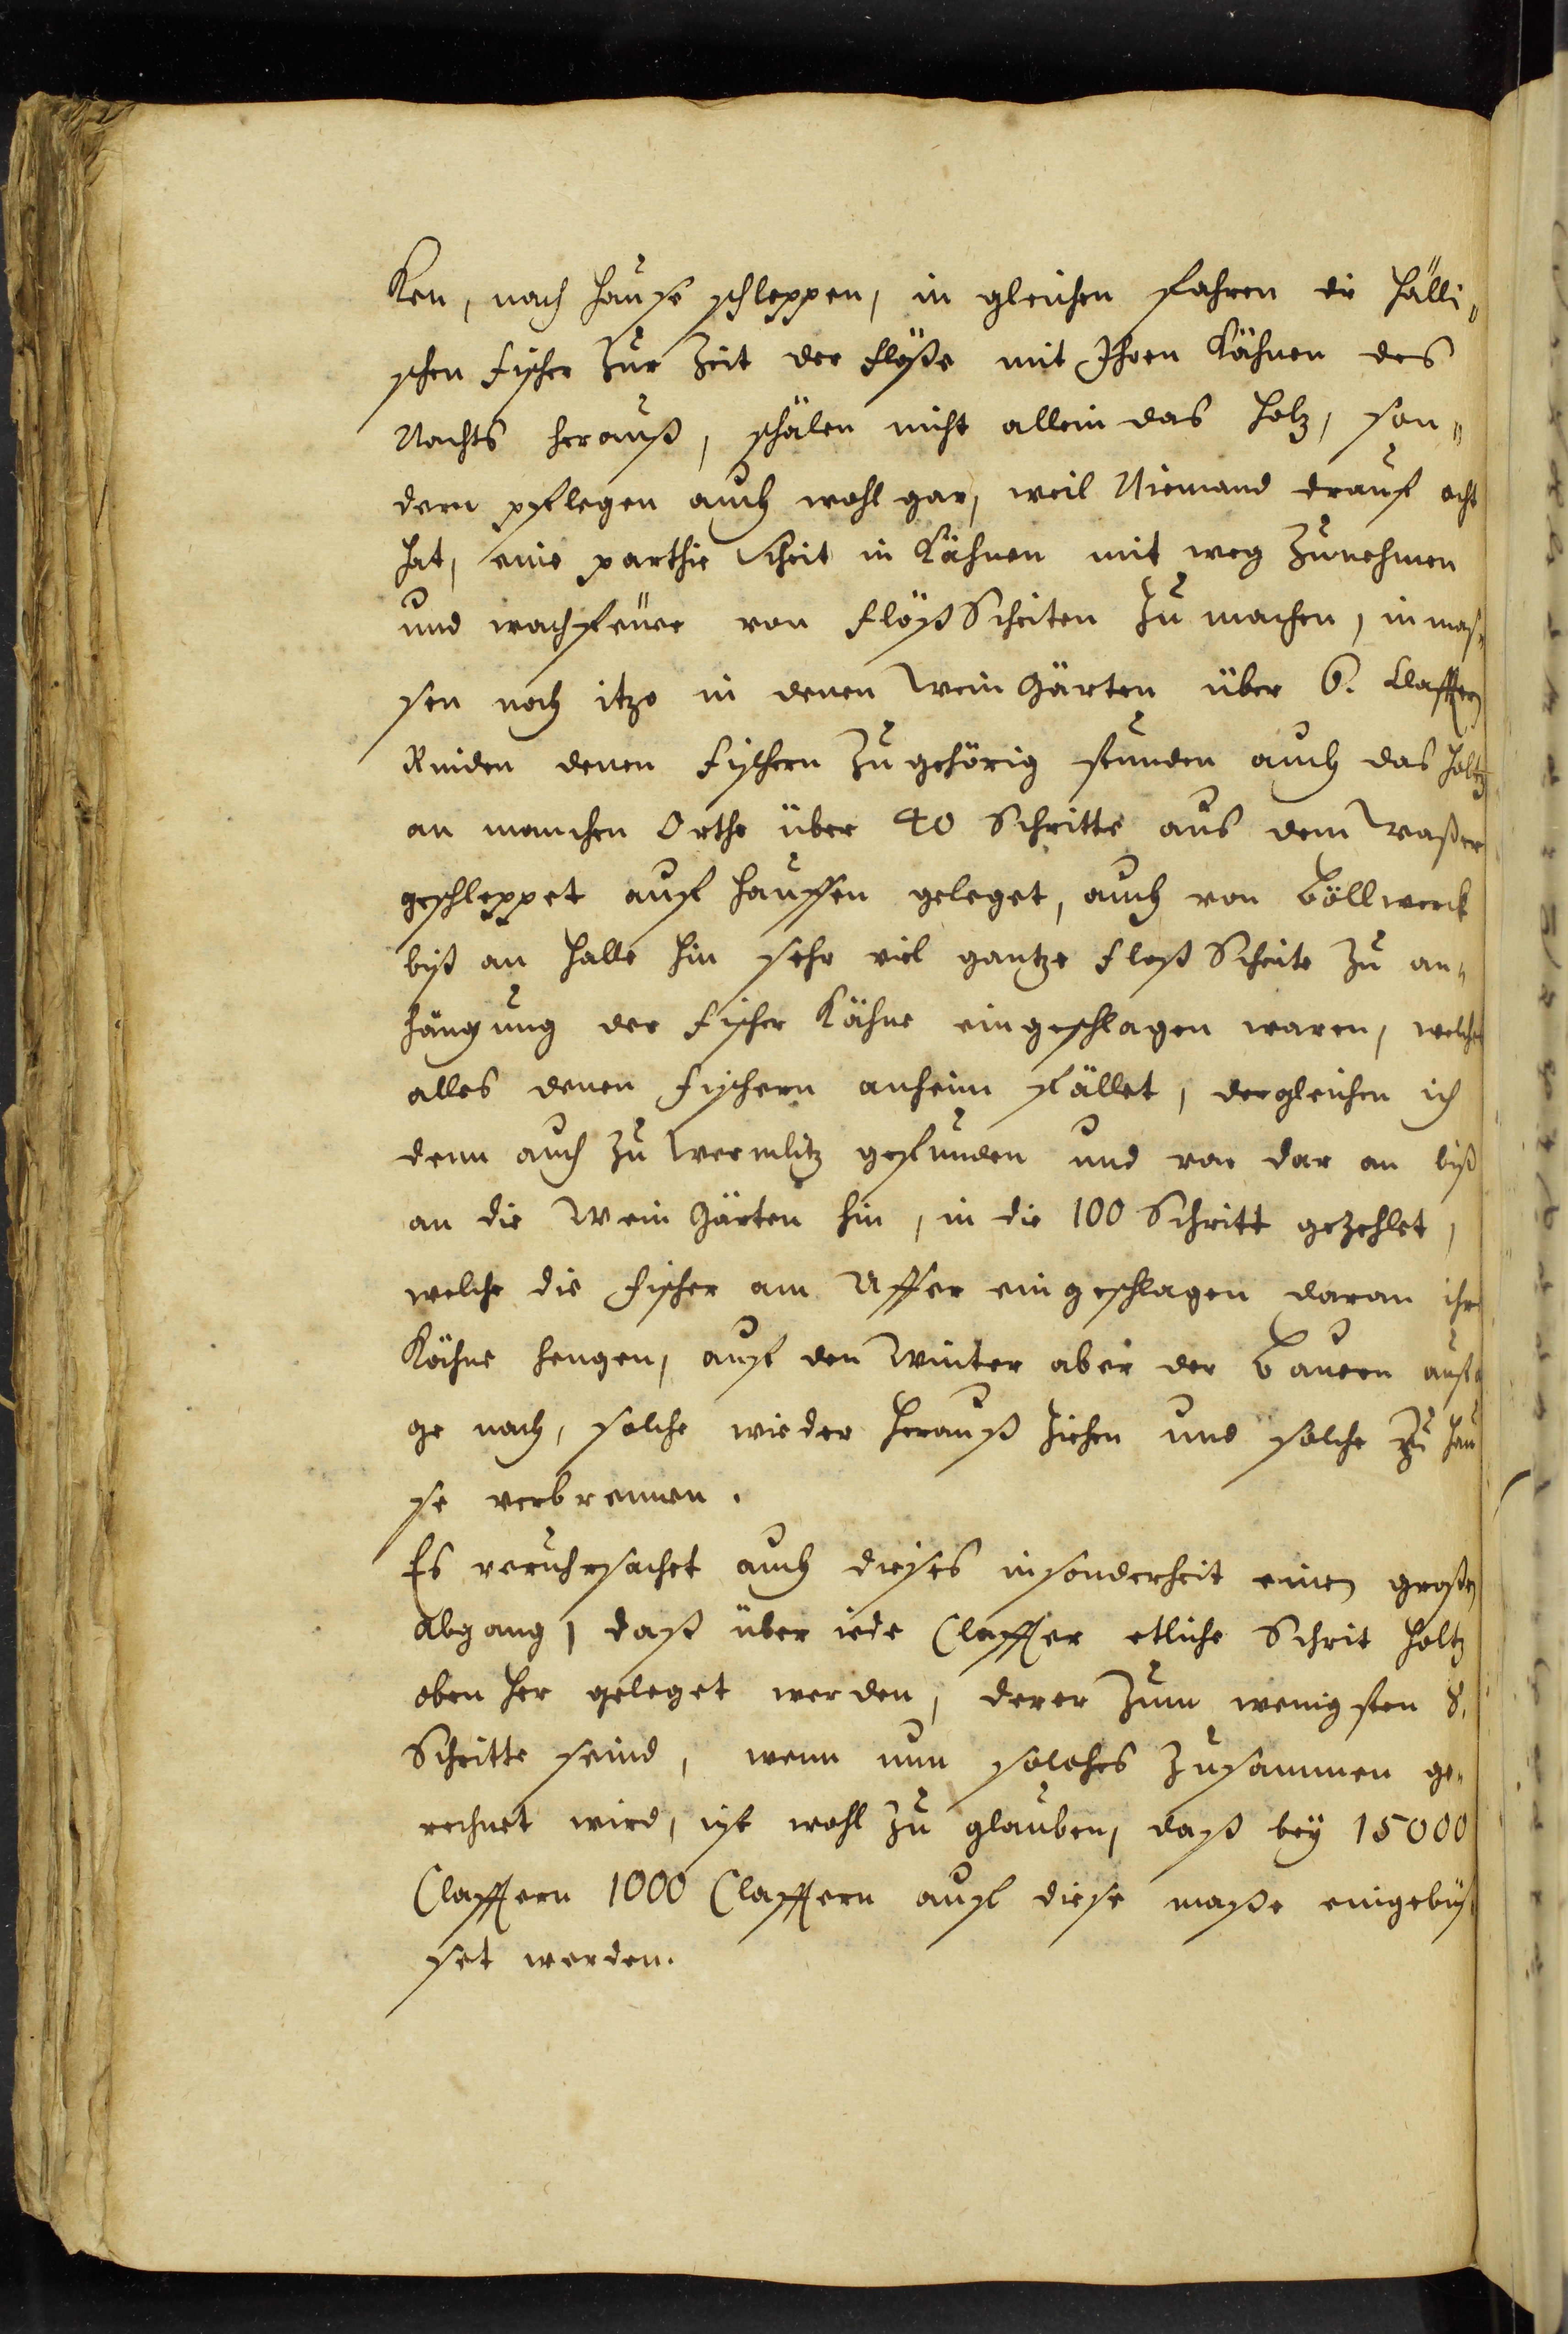 Ken, nach Hause schleppen, in gleichen fahren die Hälli„
schen Fischer zur Zeit der Flöße mit Ihren Kähnen des
Nachts herauß, schälen nicht allein das Holz, son„
dern pflegen auch wohl gar, weil Niemand drauf acht
hat, eine parthie Scheit in Kähnen mit weg zunehmen
und wachfeüer von FlößScheiten zu machen, inmaß„
sen noch itzo in denen Wein Gärten über 6. Claffter
Rinden denen Fischern zugehörig stunden auch das Holtz
an manchen Orthe über 40 Schritte aus dem Waßer
geschleppet auf Hauffen geleget, auch von Böllwerck
biß an Halle hin sehr viel gantze FloßScheite zu an„
hängung der Fischer Kähne eingeschlagen waren, welches
alles denen Fischern anheim fället, dergleichen ich
denn auch zu Wermlitz gefunden und von dar an biß
an die Wein Gärten hin, in die 100 Schritt gezehlet,
welche die Fischer am Uffer eingeschlagen daran ihre
Kähne hengen, auf den Winter aber der Bauern außa
ge nach, solche wieder herauß ziehen und solche zu Hau
se verbrennen.
Es veruhrsachet auch dieses insonderheit einen großen
abgang, daß über iede Claffter etliche Schrit Holtz
oben her geleget werden, derer zum wenigsten 8.
Schritte seind, wenn nun solches zusammen ge„
rechnet wird, ist wohl zu glauben, daß bey 15000
Clafftern 1000 Clafftern auf diese maße eingebüß
set werden.